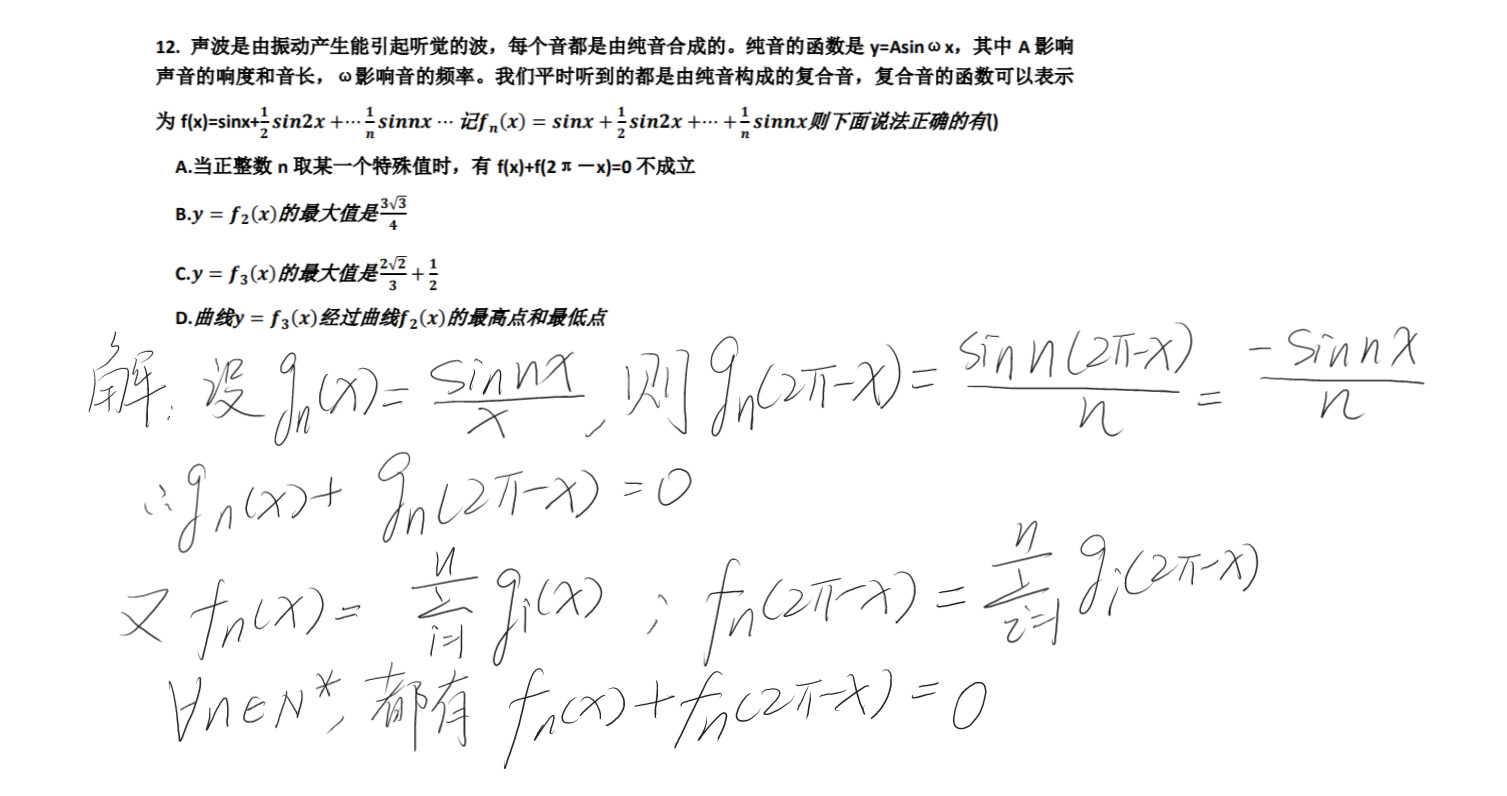 12. 声波是由振动产生能引起听觉的波，每个音都是由纯音合成的。纯音的函数是 y=Asinωx，其中 A 影响
声音的响度和音长，ω影响音的频率。我们平时听到的都是由纯音构成的复合音，复合音的函数可以表示
为 f(x)=sinx+\frac{1}{2}sin2x+⋯\frac{1}{n}sinnx⋯ 记f_n(x) = sinx+\frac{1}{2}sin2x+⋯+\frac{1}{n}sinnx则下面说法正确的有()
A.当正整数 n 取某一个特殊值时，有 f(x)+f(2π－x)=0 不成立
B.y = f_2(x)的最大值是\frac{3\sqrt{3}}{4}
C.y = f_3(x)的最大值是\frac{2\sqrt{2}}{3}+\frac{1}{2}
D.曲线y = f_3(x)经过曲线f_2(x)的最高点和最低点
解: 设 g_n(x)= \frac{sin nx}{x}, 则 g_n(2π-x)= \frac{sin n(2π-x)}{n} = \frac{-sin nx}{n}
∴g_n(x)+ g_n(2π-x) =0
又 f_n(x)= \sum_{i=1}^{n} g_i(x) ; f_n(2π-x)= \sum_{i=1}^{n} g_i(2π-x)
∀n∈N*, 都有 f_n(x)+f_n(2π-x)=0